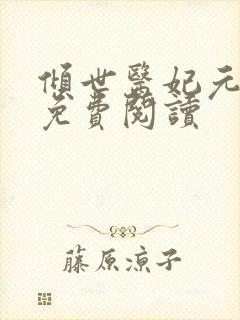 傾世醫妃元
免費閱讀
藤原涼子